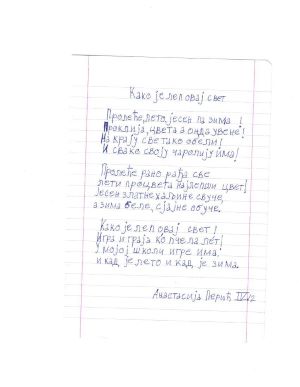 Како је леп овај свет
Пролеће, лето, јесен па зима!
Проклија, цвета а онда увене!
На крају све тако обели!
И свако своју чаролију има!
Пролеће рано рађа све
лети процвета најлепши цвет!
Јесен златне хаљине свуче,
а зима беле, сјајне обуче.
Како је леп овај свет!
Игра и граја ко пчела лет!
У мојој школи игре има:
и кад је лето и кад је зима.
Анастасија Перић IV/2